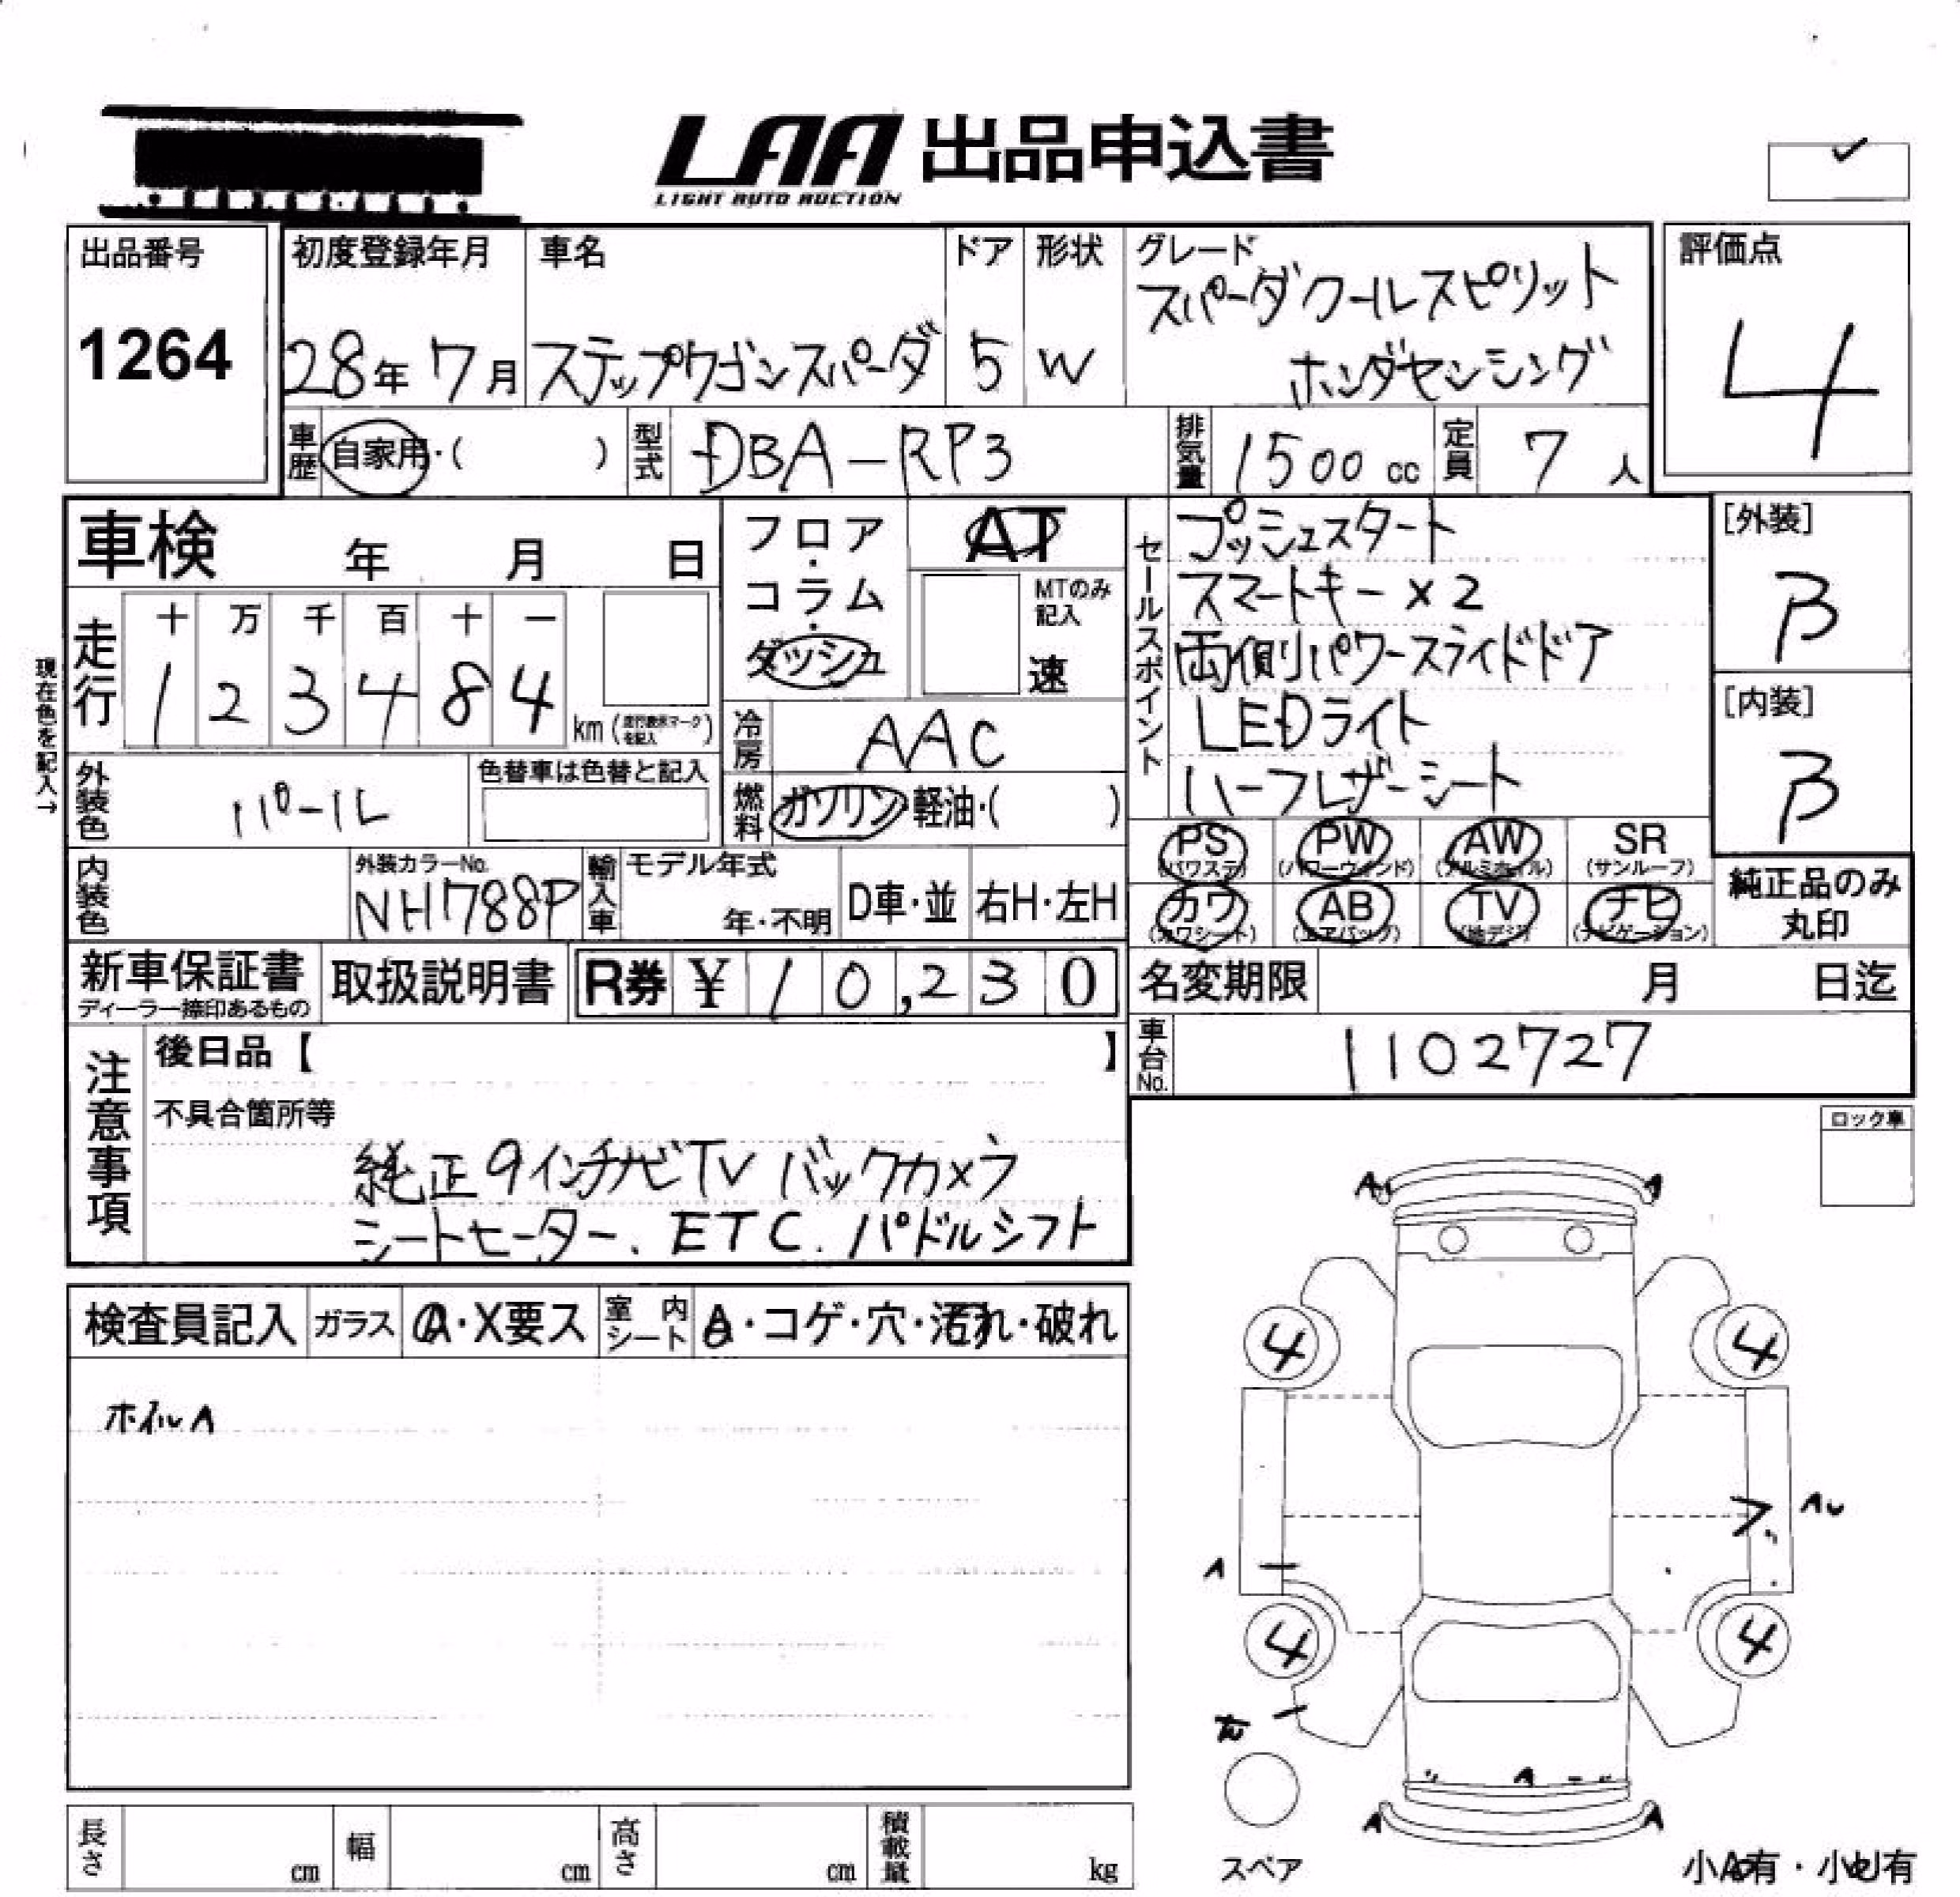 LAA 出品申込書
LIGHT AUTO AUCTION
出品番号
1264
初度登録年月
28年7月
車名
ステップワゴンスパーダ
ドア
5
形状
W
グレード
スパーダクールスピリット
ホンダセンシング
評価点
4
車歴 自家用・( )
型式 DBA-RP3
排気量 1500 cc
定員 7 人
車検 年 月 日
フロア・コラム・ダッシュ
AT
MTのみ記入
速
セールスポイント
プッシュスタート
スマートキー×2
両側パワースライドドア
LEDライト
ハーフレザーシート
[外装]
B
[内装]
B
現在色を記入→
走行
十 万 千 百 十 一
1 2 3 4 8 4
km (走行表示マークを記入)
冷房 AAC
外装色 パール
色替車は色替と記入
燃料 ガソリン・軽油・( )
PS (パワステ) PW (パワーウインド) AW (アルミホイル) SR (サンルーフ)
カワ (カワシート) AB (エアバッグ) TV (地デジ) ナビ (ナビゲーション)
純正品のみ
丸印
内装色
外装カラーNo.
NH788P
輸入車
モデル年式
年・不明
D車・並
右H・左H
新車保証書
ディーラー捺印あるもの
取扱説明書
R券 ¥ 10,230
名変期限 月 日迄
車台No. 1102727
注意事項
後日品【 】
不具合箇所等
純正9インチナビTV バックカメラ
シートヒーター、ETC、パドルシフト
ロック車
検査員記入
ガラス A・X要ス
室内シート A・コゲ・穴・汚れ・破れ
ホイルA
A A
4 4
A
4 4
A
A A
スペア
小A有・小U有
長さ cm
幅 cm
高さ cm
積載量 kg